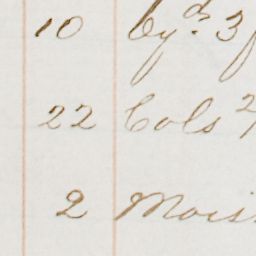 10 Cyd. 3
22 Cols 2
2 Mois